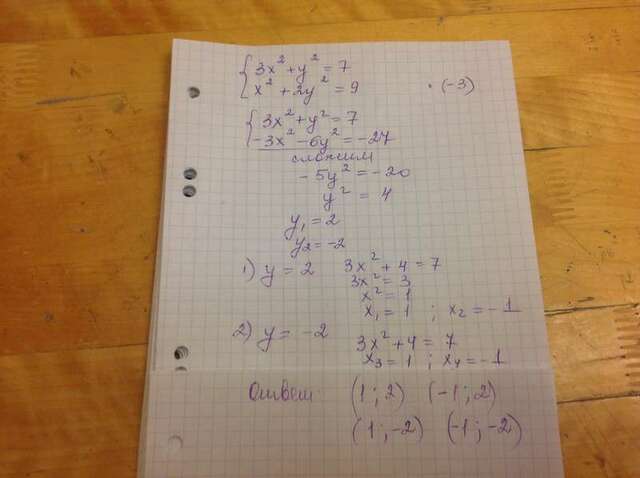 { 3x² + y² = 7
x² + 2y² = 9 · (-3)
{ 3x² + y² = 7
-3x² - 6y² = -27
сложим
-5y² = -20
y² = 4
y₁ = 2
y₂ = -2
1) y = 2 3x² + 4 = 7
3x² = 3
x² = 1
x₁ = 1 ; x₂ = -1
2) y = -2 3x² + 4 = 7
x₃ = 1 ; x₄ = -1
Ответ (1 ; 2) (-1 ; 2)
(1 ; -2) (-1 ; -2)